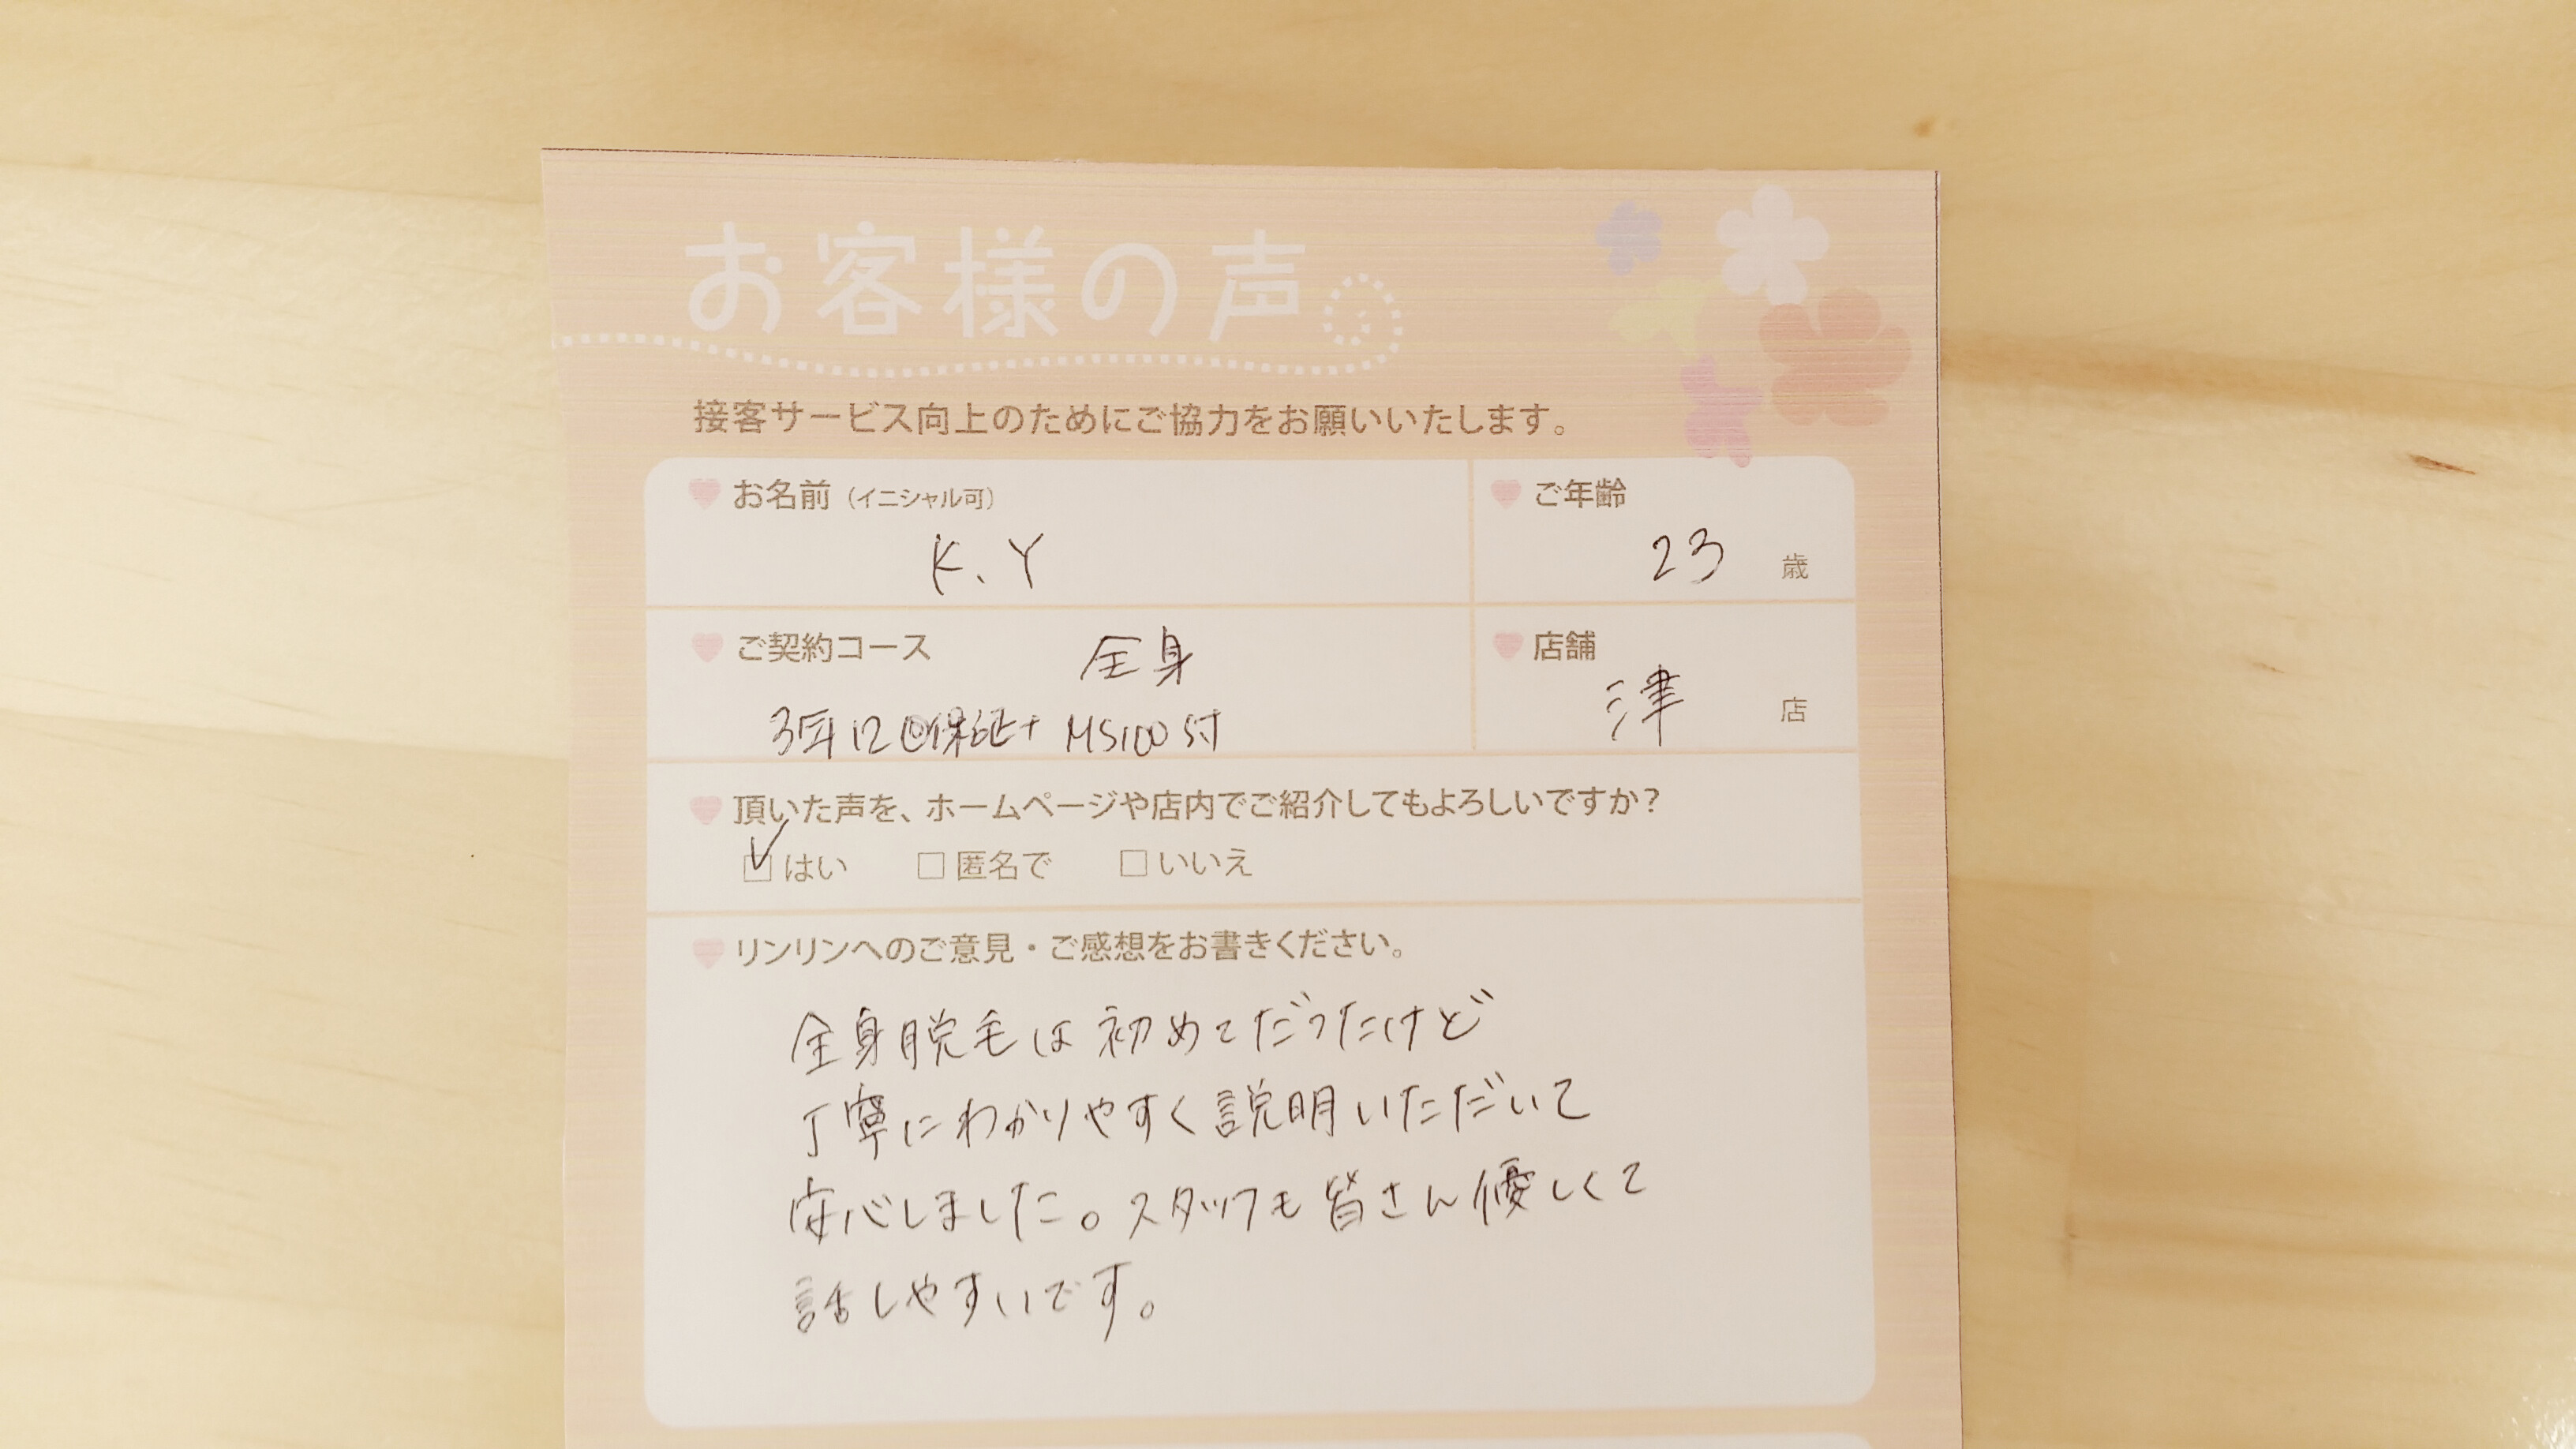 お客様の声
接客サービス向上のためにご協力をお願いいたします。
お名前（イニシャル可）
K.Y
ご年齢
23 歳
ご契約コース 全身
3年12回保証+ MS100付
店舗
津 店
頂いた声を、ホームページや店内でご紹介してもよろしいですか？
はい 匿名で いいえ
リンリンへのご意見・ご感想をお書きください。
全身脱毛は初めてだったけど
丁寧にわかりやすく説明いただいて
安心しました。スタッフも皆さん優しくて
話しやすいです。